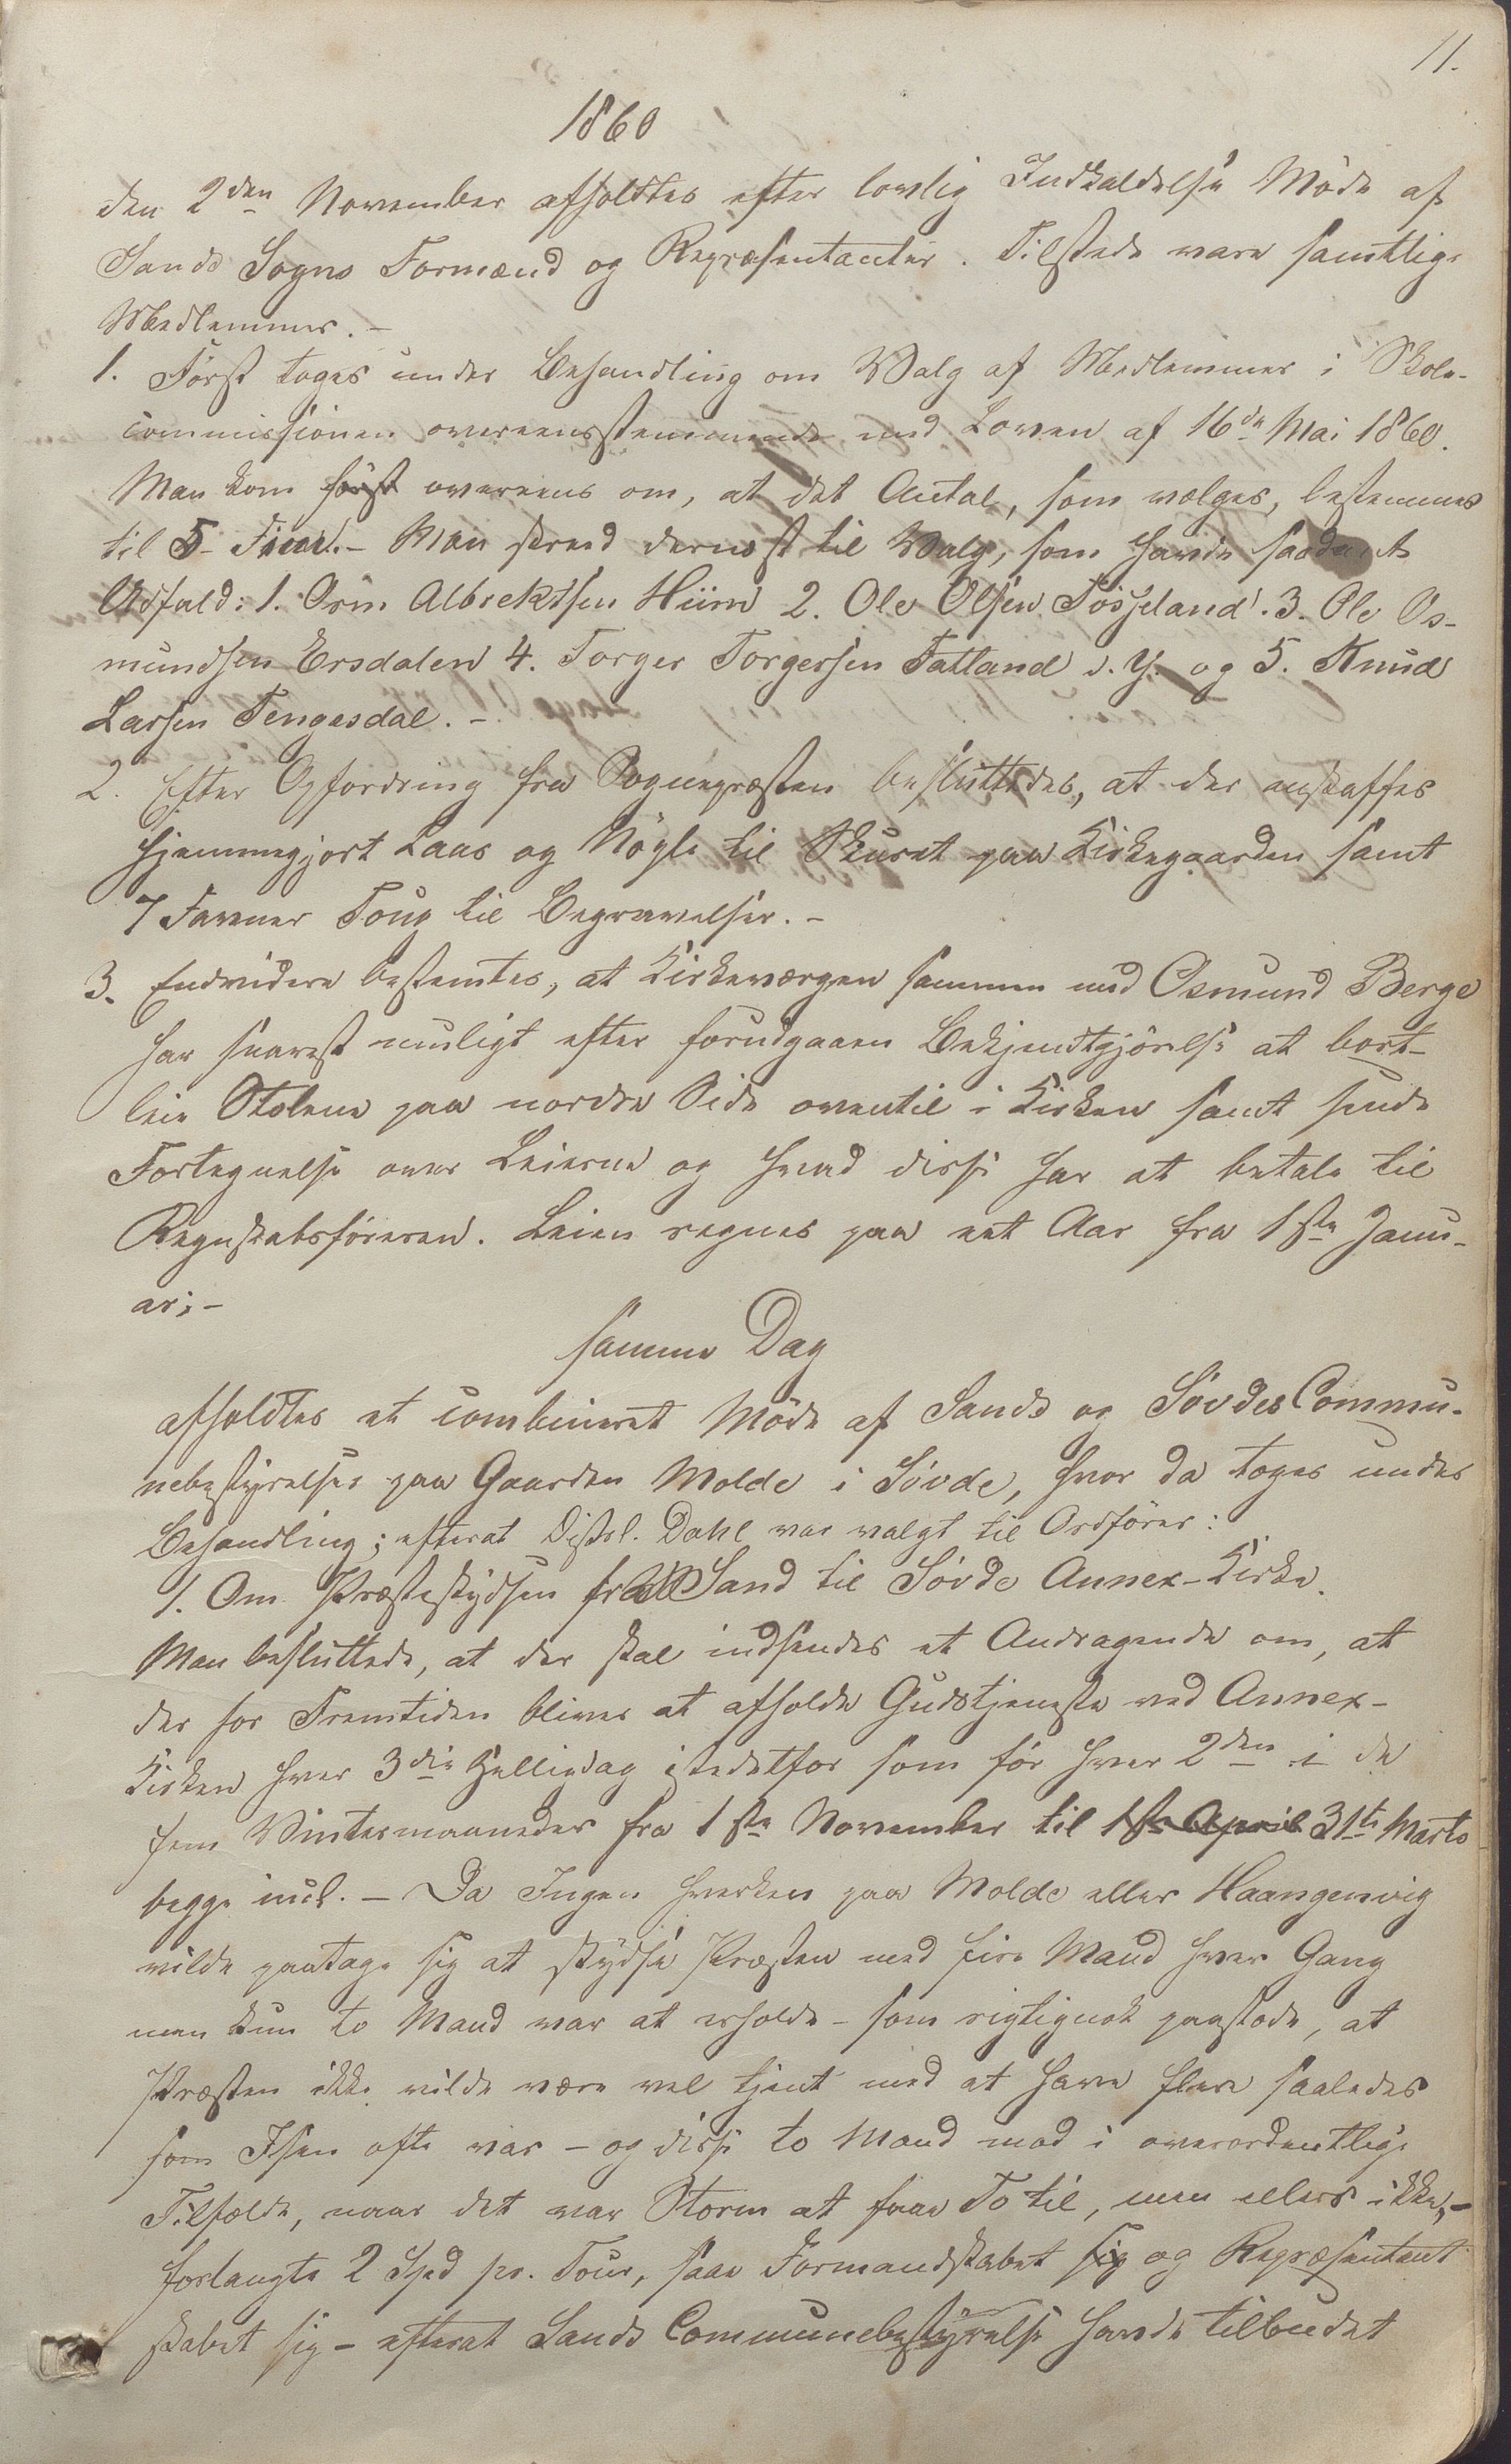 11.
1860
den 2den November afholdtes efter lovlig Indkaldelse Møde af
Sands Sogns Formænd og Repræsentanter. Tilstede vare samtlige
Medlemmer. -
1. Først toges under Behandling om Valg af Medlemmer i Skole-
commissionen overeensstemmende med Loven af 16de Mai 1860.
Man kom først overeens om, at det Antal, som vælges, bestemmes
til 5 - Fem. - Man skred dernæst til Valg, som havde saadant
Udfald: 1. Orm Albrektsen Hiim 2. Ole Olsen Fosseland. 3. Ole Os-
mundsen Ersdalen 4. Torger Torgersen Tatland d. Y. og 5. Knud
Larsen Tengesdal. -
2. Efter Opfordring fra Sognepræsten besluttedes, at der anskaffes
hjemmegjort Laas og Nøgle til Skuret paa Kirkegaarden samt
7 Favner Toug til Begravelser. -
3. Endvidere bestemtes, at Kirkeværgen sammen med Osmund Berge
har snarest muligt efter forudgaaen Bekjendtgjørelse at bort-
leie Stolene paa nordre Side oventil i Kirken samt sende
Fortegnelse over Leierne og hvad disse har at betale til
Regnskabsføreren. Leien regnes paa eet Aar fra 1ste Janu-
ar; -
Samme Dag
afholdtes et combineret Møde af Sands og Søvdes Commu-
nebestyrelser paa Gaarden Molde i Søvde, hvor da toges under
Behandling; efterat Distrl. Dahl var valgt til Ordfører:
1. Om Præsteskydsen fra Sand til Søvde Annex-Kirke.
Man besluttede, at der skal indsendes et Andragende om, at
der for Fremtiden bliver at afholde Gudstjeneste ved Annex-
Kirken hver 3die Helligdag istedetfor som før hver 2den i de
fem Vintermaaneder fra 1ste November til 1ste April 31te Marts
begge incl. - Da Ingen hverken paa Molde eller Haangenvig
vilde paatage sig at skydse Præsten med fire Mand hver Gang
men kun to Mand var at erholde - som rigtignok paastode, at
Præsten ikke vilde være vel tjent med at have flere saaledes
som Isen ofte var - og disse to Mand mod i overordentlige
Tilfælde, naar det var Storm at faae To til, men ellers ikke, -
forlangte 2 Spd pr. Tour, saae Formandskabet sig og Repræsentant
skabet sig - efterat Sands Communebestyrelse havde tilbudet